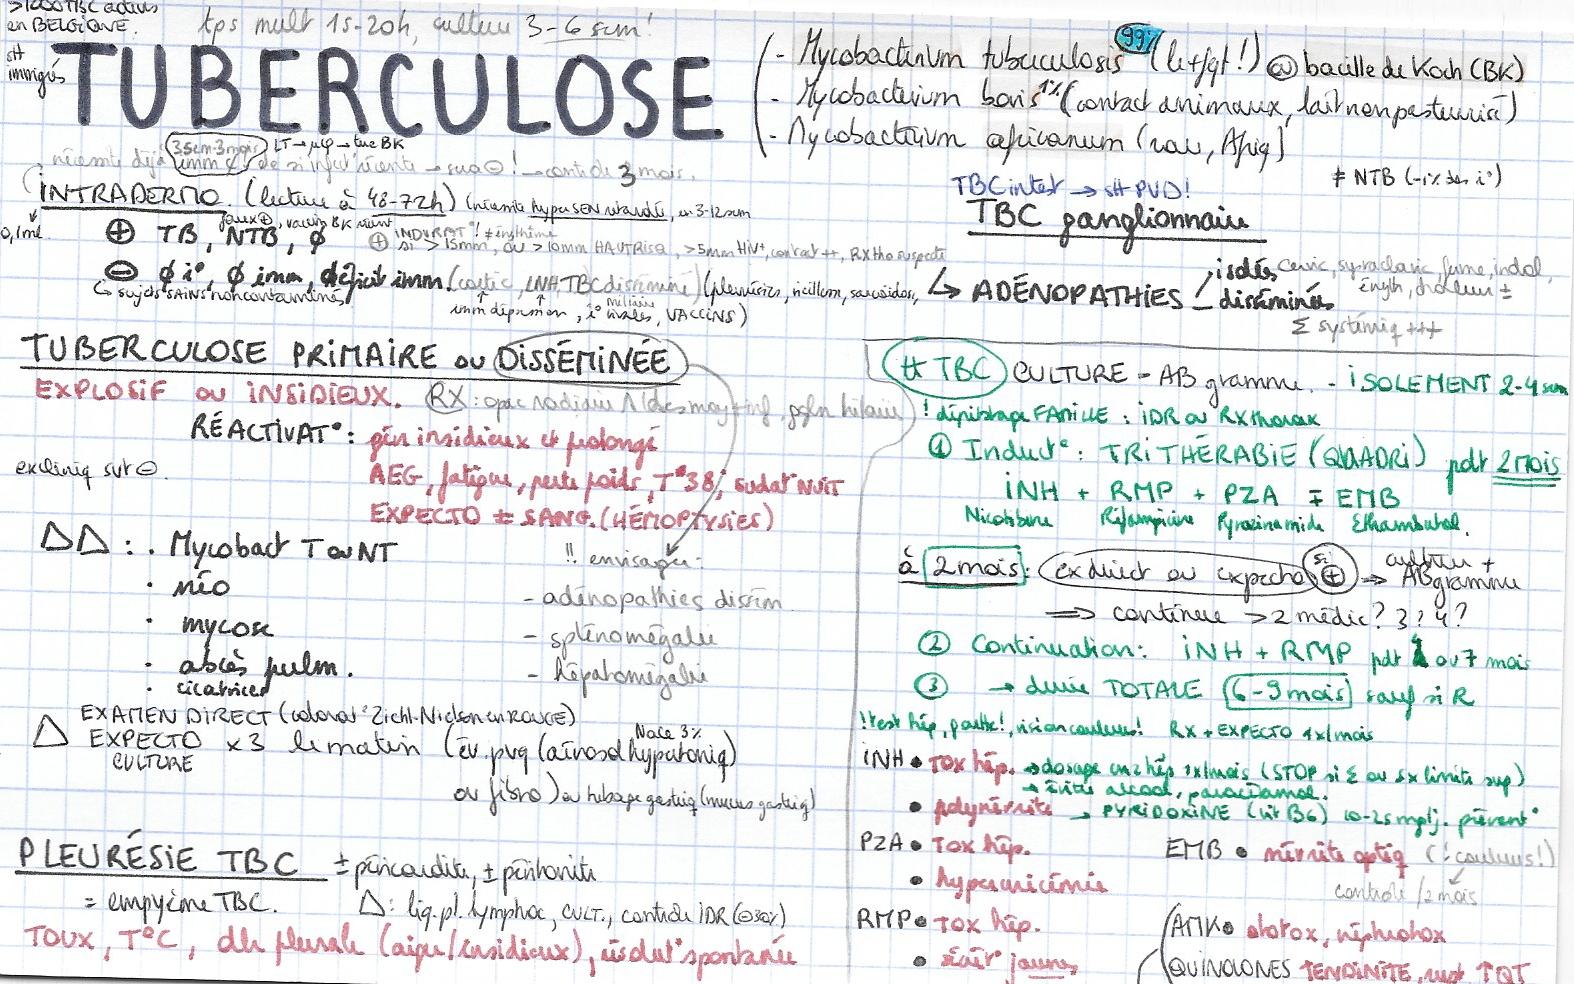 >1000 TBC actives
en BELGIQUE.
sH
immigrés
tps mult 15-20h, culture 3-6 sem!
TUBERCULOSE
- Mycobacterium tuberculosis 99% (le + fqt!) @ bacille de Koch (BK)
- Mycobacterium bovis 1% (contact animaux, lait non pasteurisé)
- Mycobacterium africanum (rare, Afriq)
≠ NTB (-1% des i°)
3 sem-3 mois LT → μφ → tue BK
nécessite déjà imm ¢, de si inf° récente → sera ⊖! → contrôle 3 mois.
INTRADERMO. (lecture à 48-72h) (nécessite hyperSEN retardée, en 3-12 sem
0,1ml
⊕ TB, NTB, ∅
faux ⊕, vaccin BK
⊕ INDURAT°! ≠ érythème
si >15mm, ou >10mm HAUT RISQ, >5mm HIV+, contact ++, RX tho suspecte
⊖ ∅ i°, ∅ imm, déficit imm. (cortic, INH, TBC disséminé) (pleurésies, vieillum, sarcoïdos,
miliaire
↳ sujets SAINS non contaminés
imm dépression, i° virales, VACCINS)
TBC intest → sH PVD!
TBC ganglionnaire
↳ ADÉNOPATHIES
isolés cervic, supraclavic, ferme, indol, éryth, chaleur ±
disséminées
Σ systémiq +++
TUBERCULOSE PRIMAIRE ou DISSÉMINÉE
EXPLOSIF ou INSIDIEUX. RX: opac
RÉACTIVAT°: gén insidieux et prolongé
ex cliniq svt ⊖.
AEG, fatigue, perte poids, T°38, sudat° NUIT
EXPECTO ± SANG. (HÉMOPTYSIES)
ΔΔ: . Mycobact T ou NT
. néo
. mycose
. abcès pulm.
. cicatrices
!! envisager:
- adénopathies dissém
- splénomégalie
- hépatomégalie
EXAMEN DIRECT (colorat° Ziehl-Nielsen en ROUGE)
Δ EXPECTO x3 le matin (év. pvq (aérosol hypertoniq)
NaCl 3%
CULTURE
ou fibro) ou tubage gastriq (mucus gastriq)
PLEURÉSIE TBC ± péricardite, ± péritonite
= empyème TBC. Δ: liq. pl. lymphoc, CULT., contrôle IDR (⊖30%)
TOUX, T°C, dlr pleurale (aigu/insidieux), résolut° spontanée
tt TBC CULTURE - AB gramme. - ISOLEMENT 2-4 sem
! dépistage FAMILLE: IDR ou RX thorax
① Induct°: TRITHÉRABIE (QUADRI) pdt 2 MOIS
INH + RMP + PZA ∓ EMB
Nicotibine Rifampicine Pyrazinamide Ethambutol.
à 2 mois: ex direct ou expecto si ⊕ ⇒ culture + ABgramme
⇒ continue >2 médic? 3? 4?
② Continuation: INH + RMP pdt 4 ou 7 mois
③ → durée TOTALE 6-9 mois sauf si R
! test hép, vision couleurs! RX + EXPECTO 1x/mois
INH • TOX hép. → dosage enz hép 1x/mois (STOP si Σ ou 5x limite sup)
→ éviter alcool, paracétamol.
• polynévrite → PYRIDOXINE (vit B6) 10-25 mg/j. prévent°
PZA • TOX hép.
• hyperuricémie
EMB • névrite optiq (! couleurs!)
contrôle /2 mois
RMP • TOX hép.
• sécrét° jaunes
AMK • ototox, néphrotox
QUINOLONES TENDINITE, ↑QT